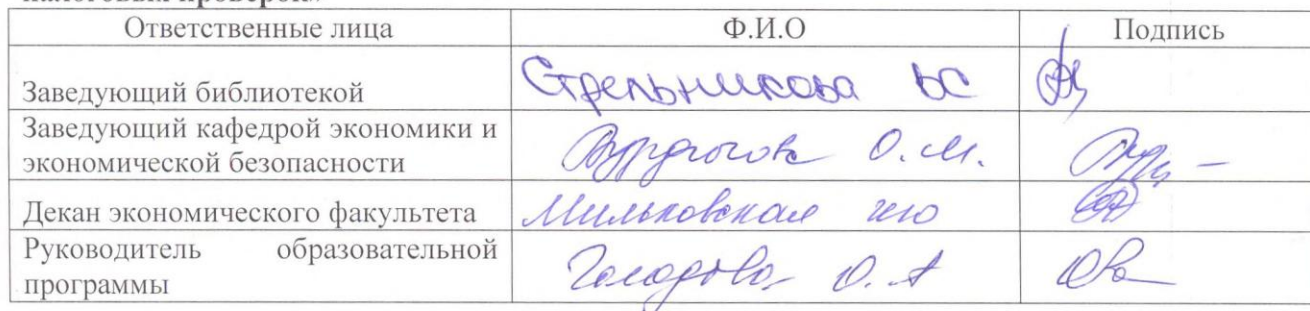 налоговых проверок»
Ответственные лица Ф.И.О Подпись
Заведующий библиотекой Стрельникова ВС
Заведующий кафедрой экономики и
экономической безопасности О.М.
Декан экономического факультета Мильковская
Руководитель образовательной
программы О.А